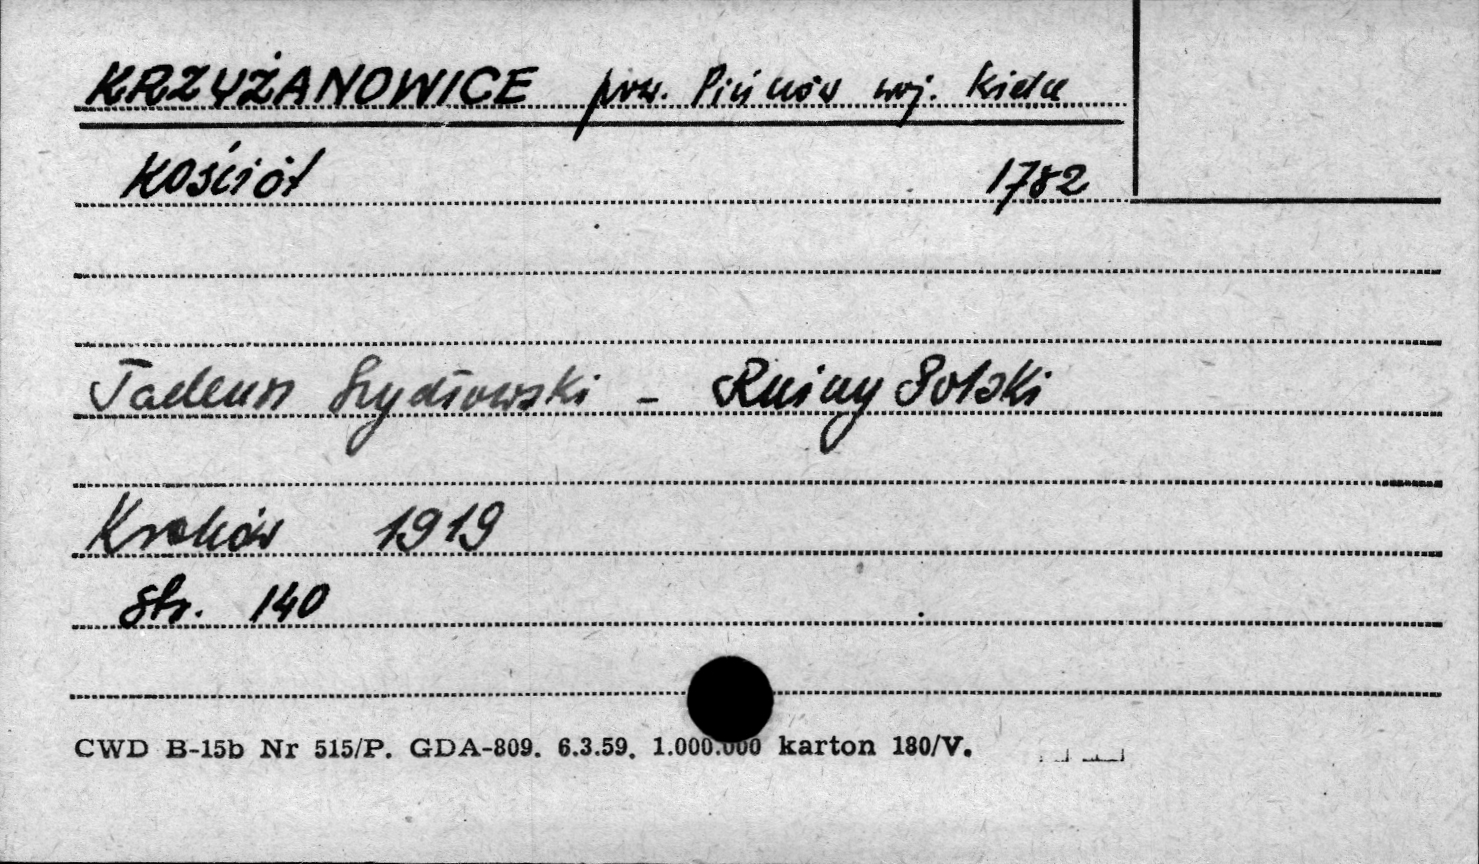 KRZYŻANOWICE pow. Pińczów woj. Kielce
Kościół 1782
Tadeusz Szydłowski - Ruiny Polski
Kraków 1919
str. 140
CWD B-15b Nr 515/P. GDA-809. 6.3.59. 1.000.000 karton 180/V.